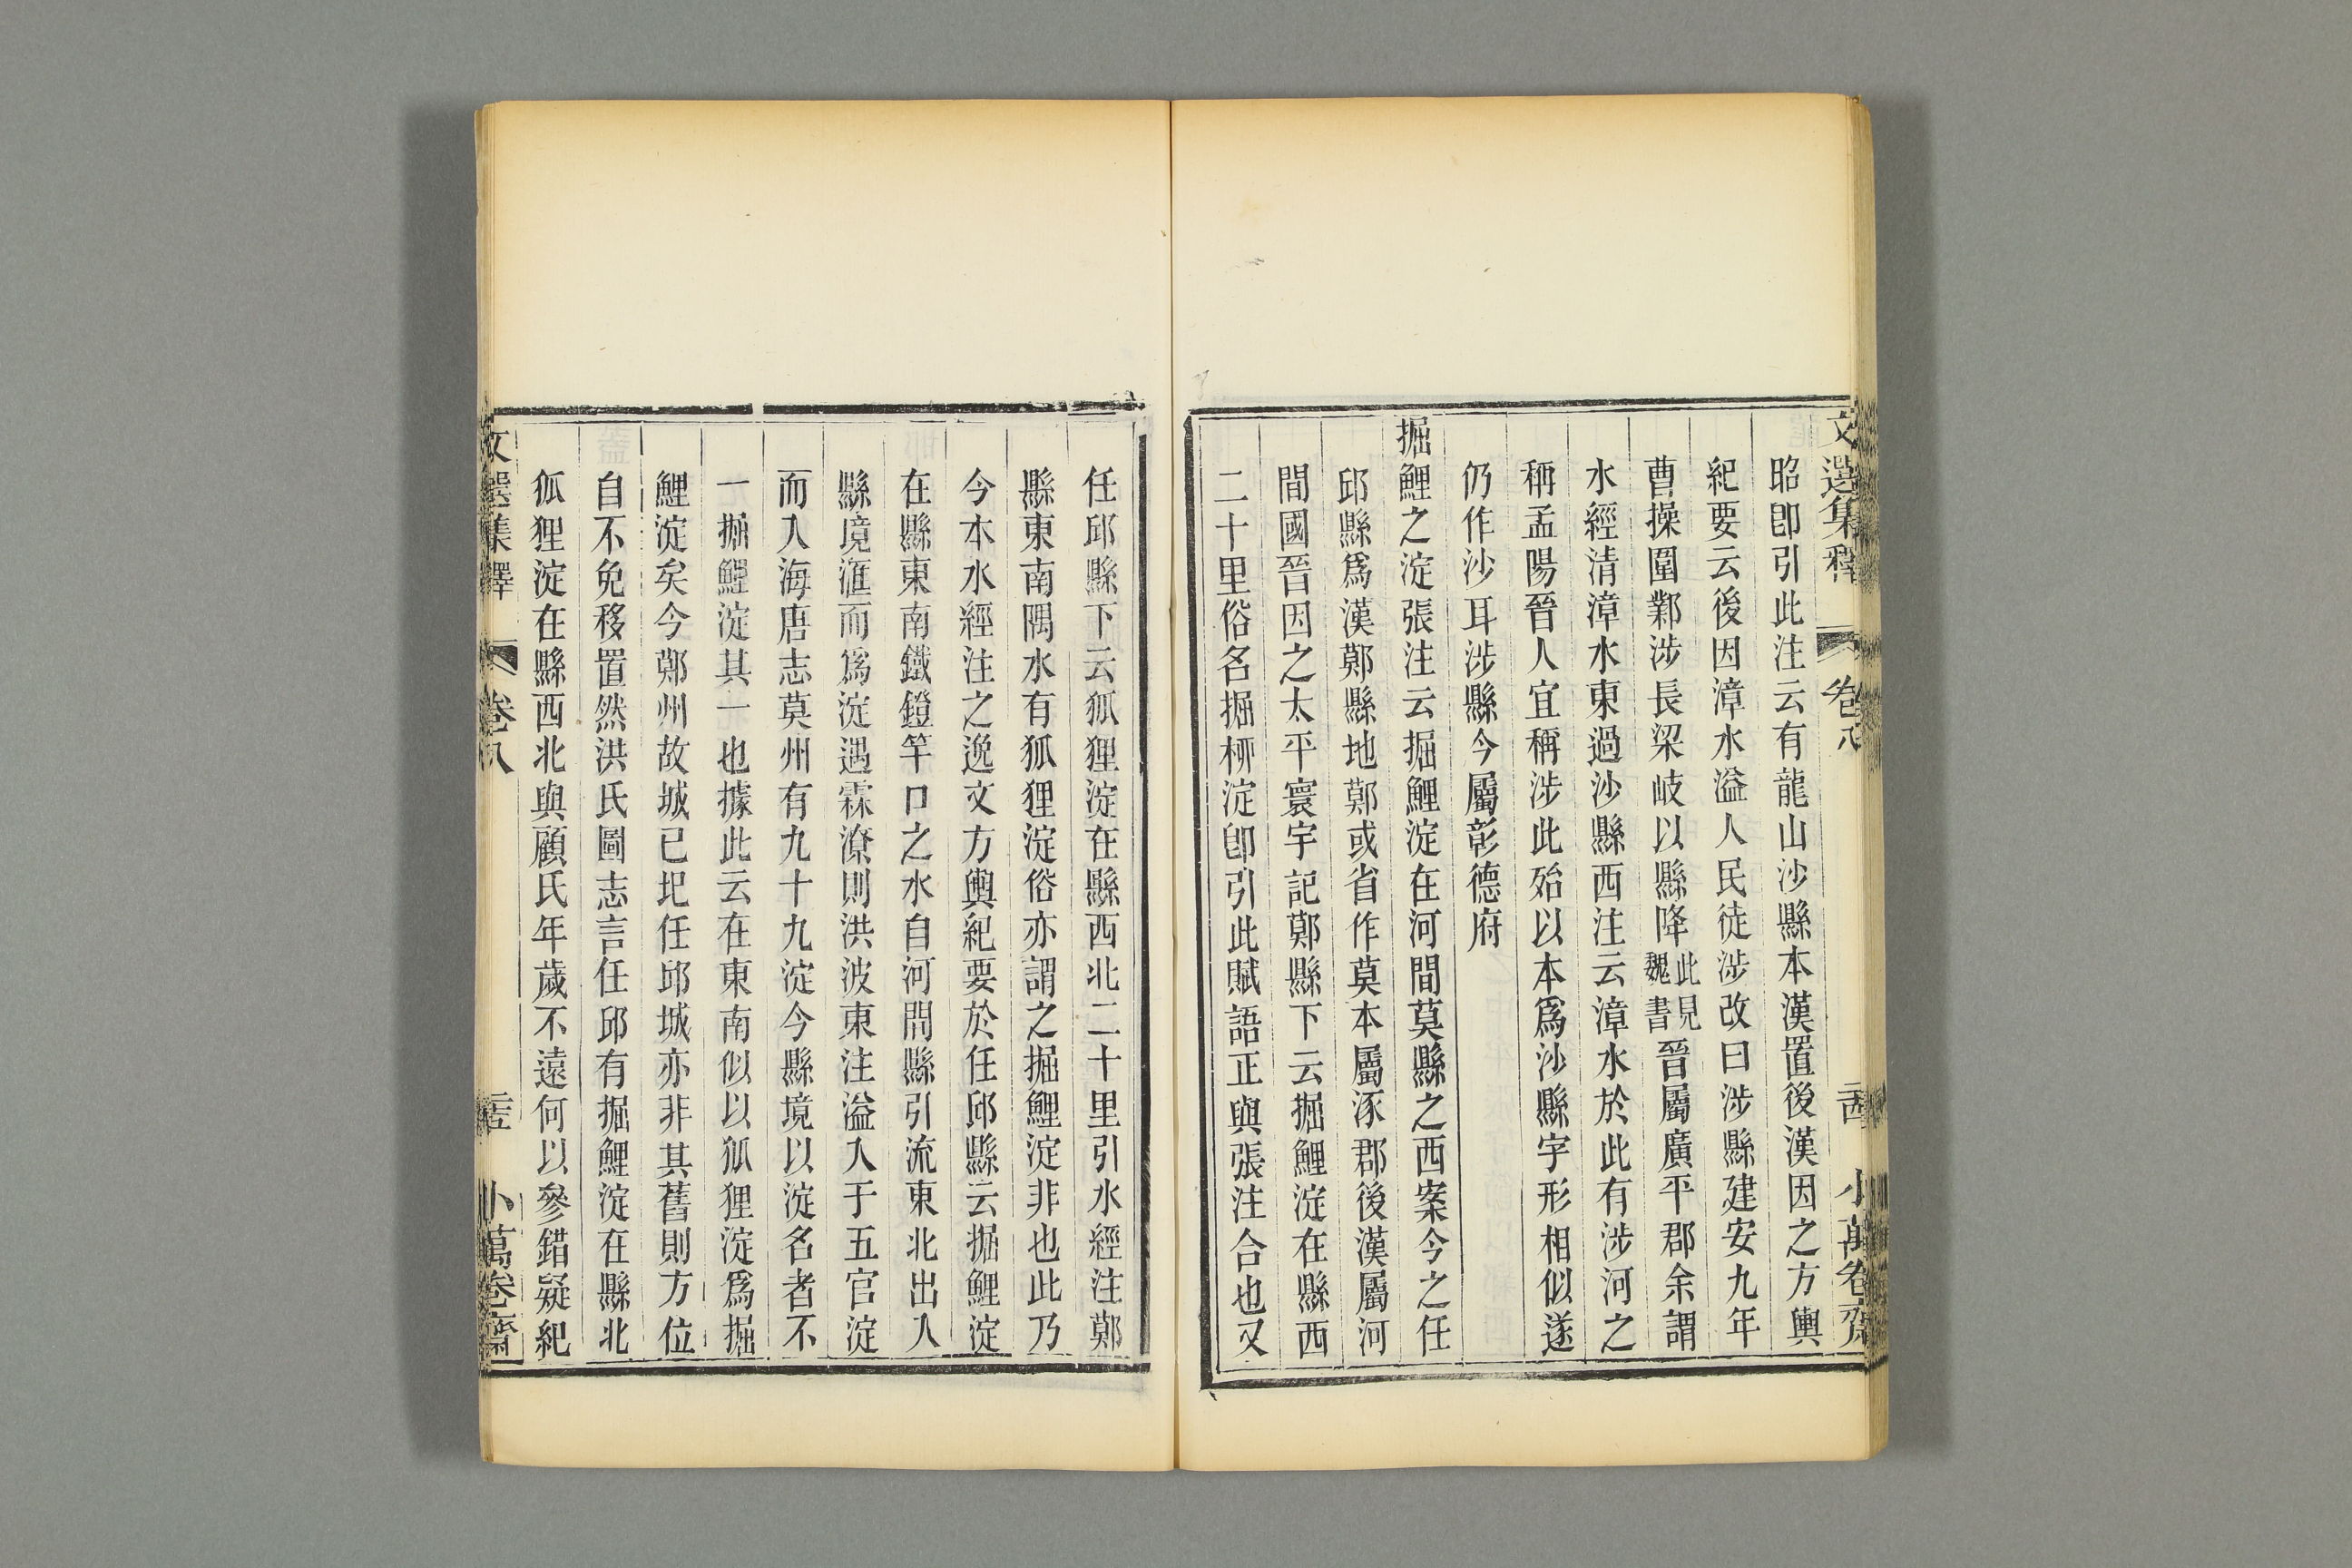 文選集釋 卷八 二十四 小萬卷齋
昭卽引此注云有龍山沙縣本漢置後漢因之方輿
紀要云後因漳水溢人民徒涉改曰涉縣建安九年
曹操圍鄴涉長梁岐以縣降此見魏書晉屬廣平郡余謂
水經清漳水東過沙縣西注云漳水於此有涉河之
稱孟陽晉人宜稱涉此殆以本爲沙縣字形相似遂
仍作沙耳涉縣今屬彰德府
掘鯉之淀張注云掘鯉淀在河間莫縣之西案今之任
邱縣爲漢鄚縣地鄚或省作莫本屬涿郡後漢屬河
間國晉因之太平寰宇記鄚縣下云掘鯉淀在縣西
二十里俗名掘柳淀卽引此賦語正與張注合也又
任邱縣下云狐狸淀在縣西北二十里引水經注鄚
縣東南隅水有狐狸淀俗亦謂之掘鯉淀非也此乃
今本水經注之逸文方輿紀要於任邱縣云掘鯉淀
在縣東南鐵鐙竿口之水自河間縣引流東北出入
縣境滙而爲淀遇霖潦則洪波東注溢入于五官淀
而入海唐志莫州有九十九淀今縣境以淀名者不
一掘鯉淀其一也據此云在東南似以狐狸淀爲掘
鯉淀矣今鄚州故城已圯任邱城亦非其舊則方位
自不免移置然洪氏圖志言任邱有掘鯉淀在縣北
狐狸淀在縣西北與顧氏年歲不遠何以參錯疑紀
文選集釋 卷八 二十五 小萬卷齋